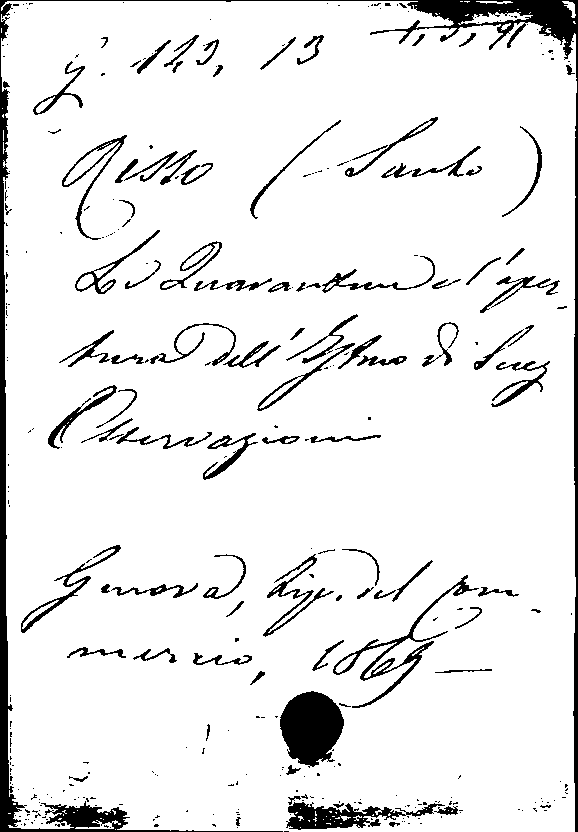 g. 123, 13 1, 5, 91
Risso (Santo)
Le Quarantene e l'aper-
tura dell'Istmo di Suez
Osservazioni
Genova, tip. del com-
mercio, 1869 —